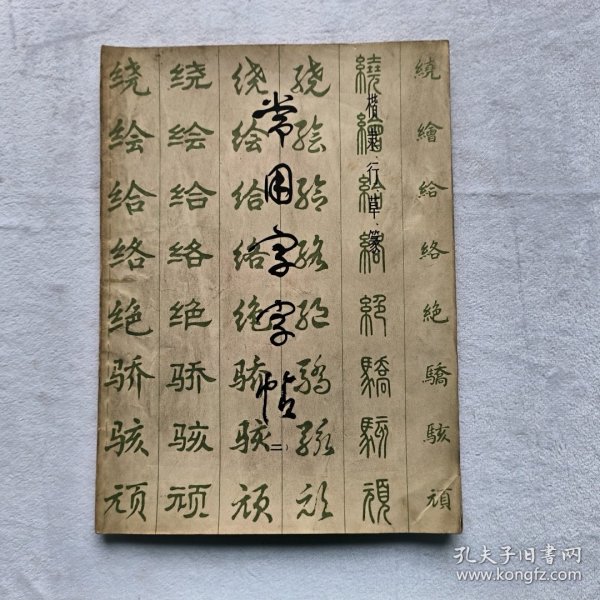 常用字字帖
(二)
楷、隶、行、草、篆
绕绘给络绝骄骇顽
绕绘给络绝骄骇顽
绕绘给络绝骄骇顽
绕绘给络绝骄骇顽
繞繪給絡絕驕駭頑
繞繪給絡絶驕駭頑
孔夫子旧书网
www.kongfz.com